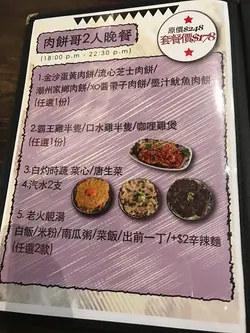 肉餅哥2人晚餐
(18:00 p.m - 22:30 p.m)
原價$248
套餐價$178
1.金沙蛋黃肉餅/流心芝士肉餅/
潮州家鄉肉餅/XO醬帶子肉餅/墨汁魷魚肉餅
(任選1份)
2.霸王雞半隻/口水雞半隻/咖喱雞煲
(任選1份)
3.白灼時蔬 菜心/唐生菜
4.汽水2支
5. 老火靚湯
白飯/米粉/南瓜粥/菜飯/出前一丁/+$2辛辣麵
(任選2款)